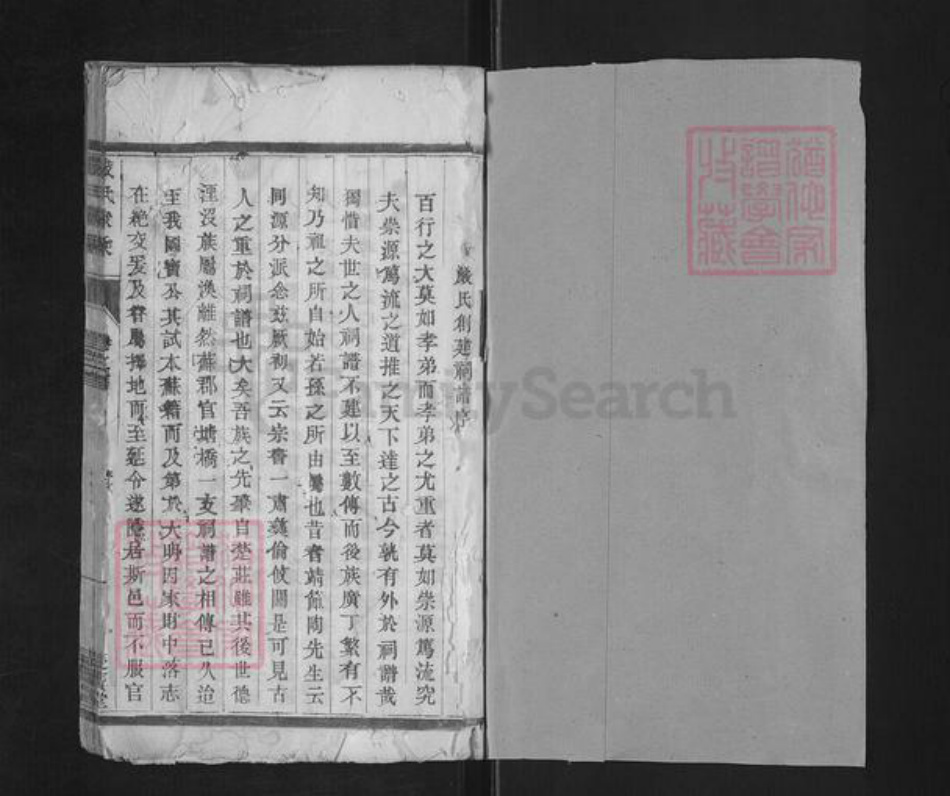 嚴氏創建祠譜序
百行之大莫如孝弟而孝弟之尤重者莫如崇源篤流究
夫崇源篤流之道推之天下達之古今孰有外於祠譜哉
獨惜夫世之人祠譜不建以至數傳而後族廣丁繁有不
知乃祖之所自始若孫之所由屬也昔者靖節陶先生云
同源分派念茲厥初又云宗會一肅雖倫攸關是可見古
人之重於祠譜也大矣吾族之先肇自楚莊雖其後世德
湮沒族屬渙離然蘇郡官塘橋一支祠譜之相傳已久迨
至我國寶公其試本蘇籍而及第於大明因家財中落志
在絕交爰及眷屬擇地而至延令遂隱居斯邑而不服官
嚴氏家乘
卷之
猶他家
譜學會
收藏
FamilySearch